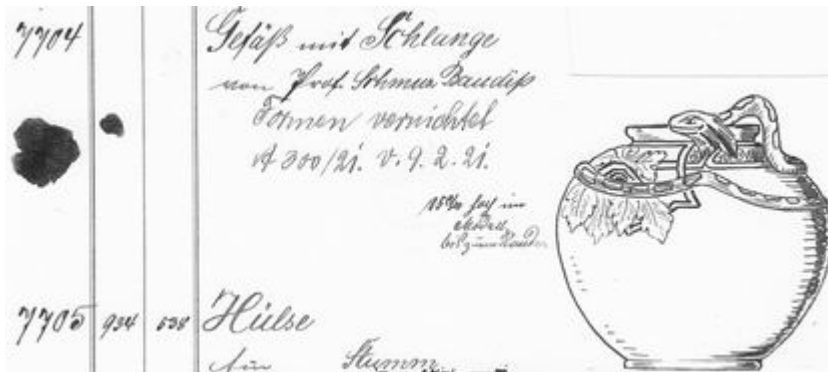 7704 Gefäß mit Schlange
von Prof. Schmuz Baudiß
Formen vernichtet
300/21. v. 9. 2. 21.
15 % hoch im
Modell
bis zum Rande
7705 934 538 Hülse
für Stumm